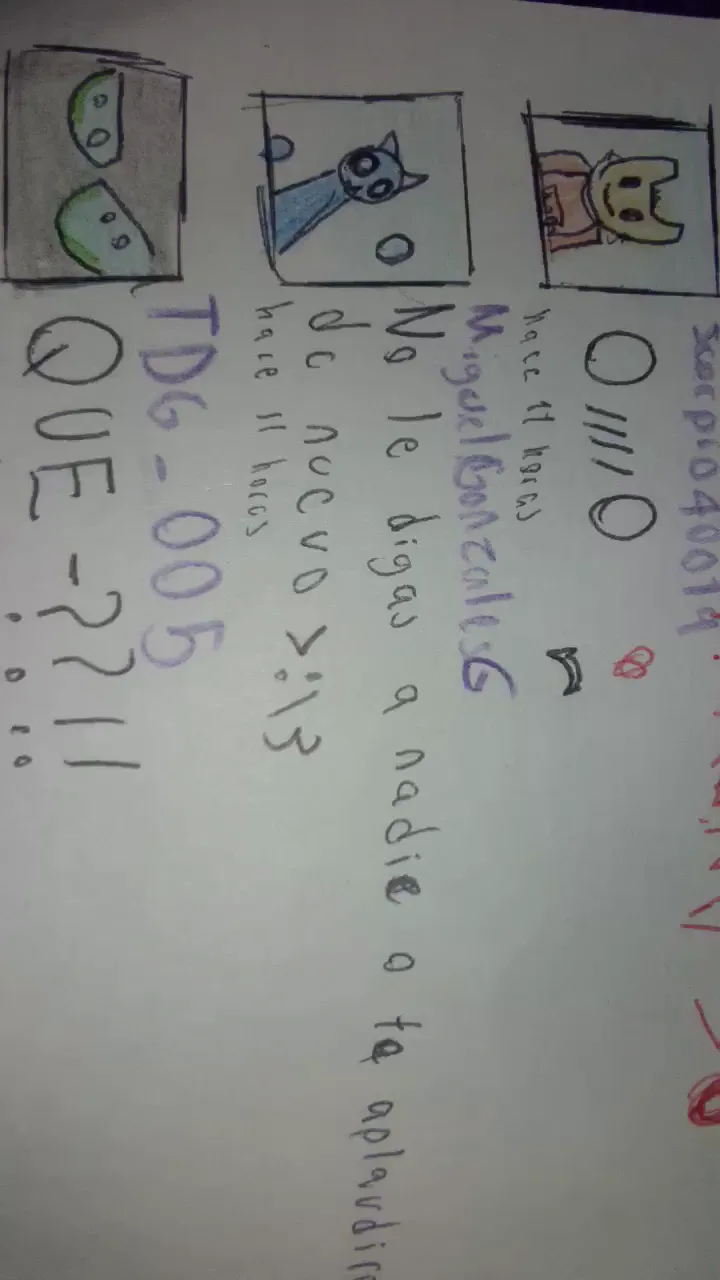 Scorpio40014
O////O
hace 11 horas
MiguelGonzalesG
No le digas a nadie o te aplaudire
de nuevo >:13
hace 11 horas
TDG-005
QUE-??!!